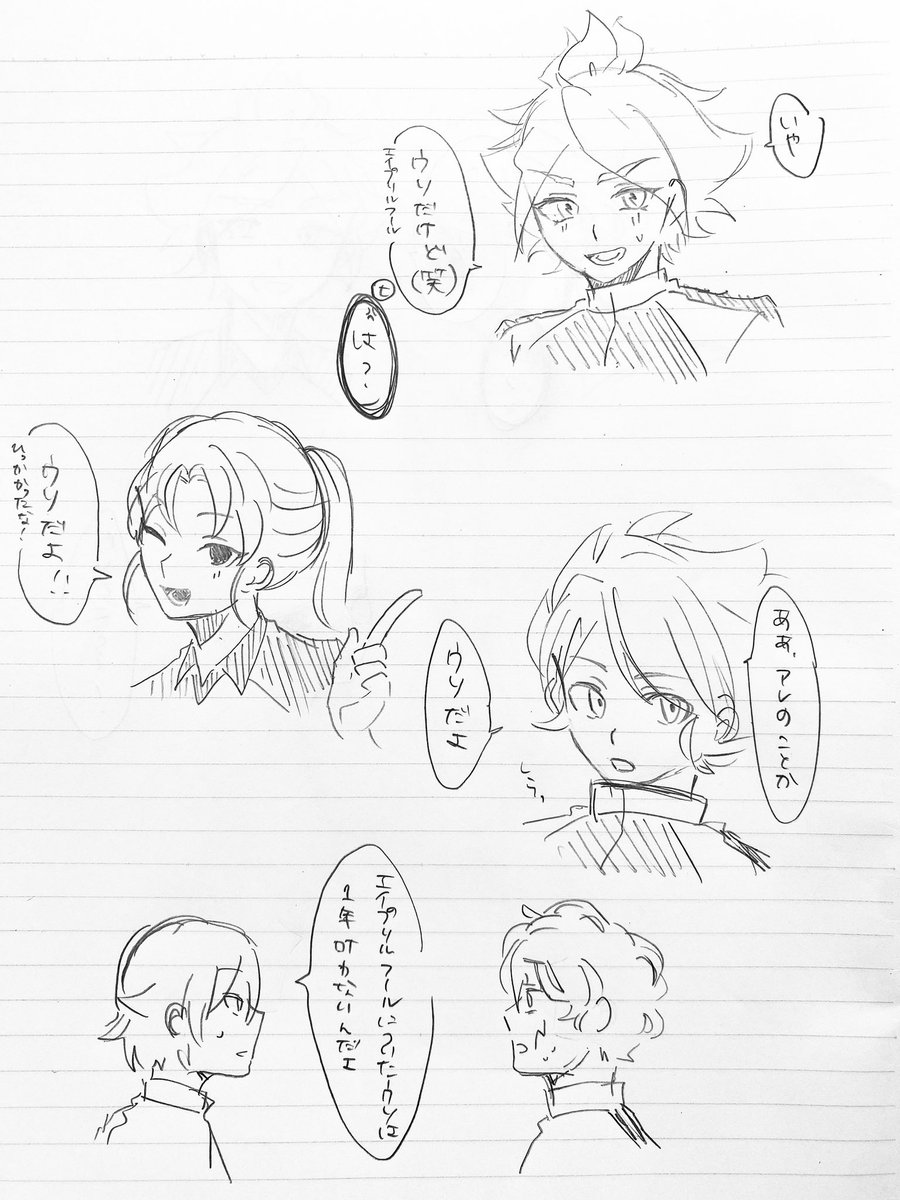 いや
ウソだけど(笑)
エイプリルフール
は?
ウソだよ!!
ひっかかったな!
ああ、アレのことか
ウソだよ
しれっ
エイプリルフールについたウソは
1年叶わないんだよ